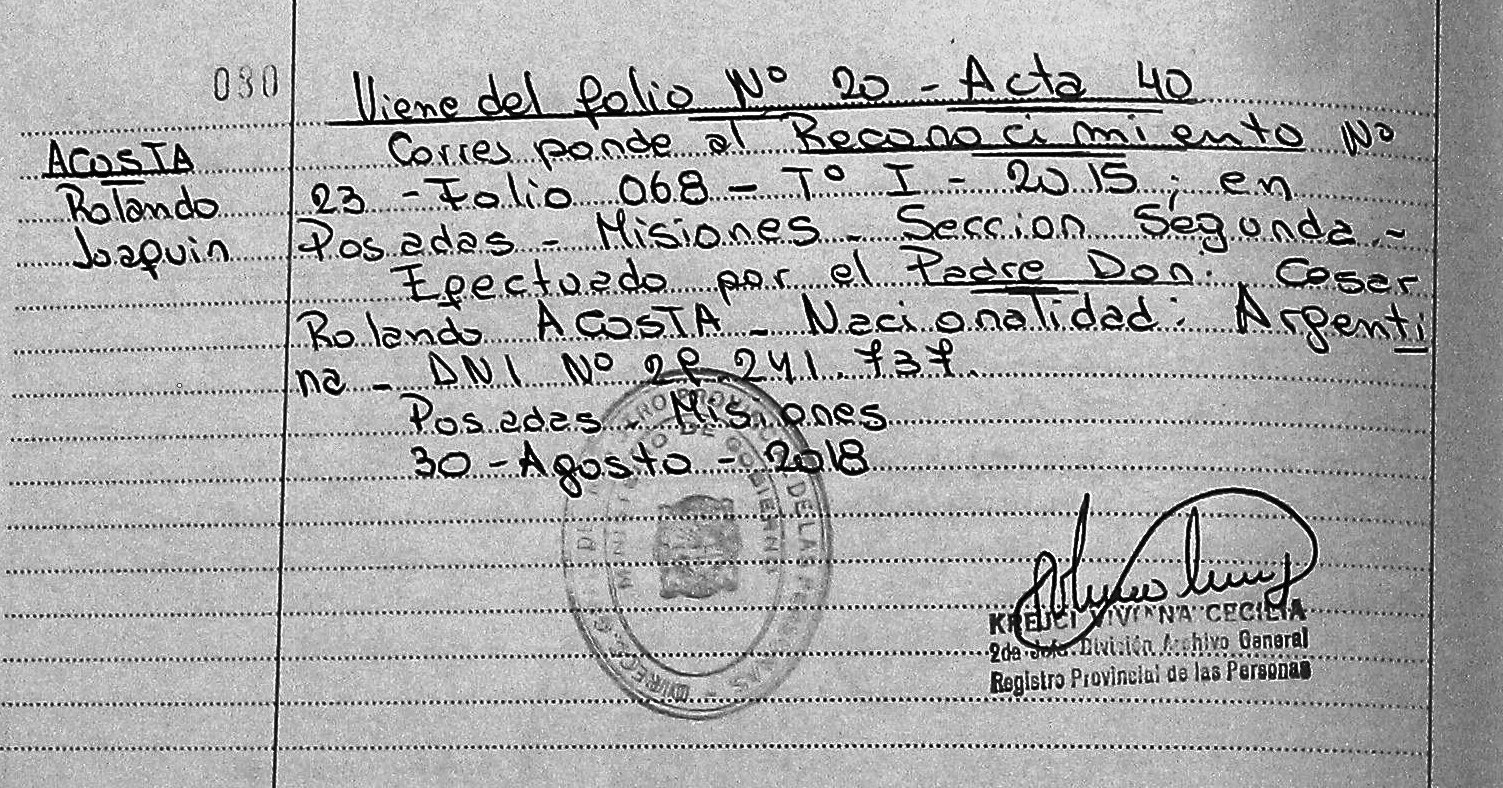 030
Viene del folio Nº 20 - Acta 40
ACOSTA
Rolando
Joaquin
Corresponde al Reconocimiento Nº
23 - Folio 068 - Tº I - 2015; en
Posadas - Misiones - Seccion Segunda.-
Efectuado por el Padre Don: Cesar
Rolando ACOSTA - Nacionalidad: Argenti
na - DNI Nº 241.737.
Posadas - Misiones
30 - Agosto - 2018
MINISTERIO DE GOBIERNO
DE LAS PERSONAS
KREJCI VIVIANA CECILIA
2da Jefe División Archivo General
Registro Provincial de las Personas